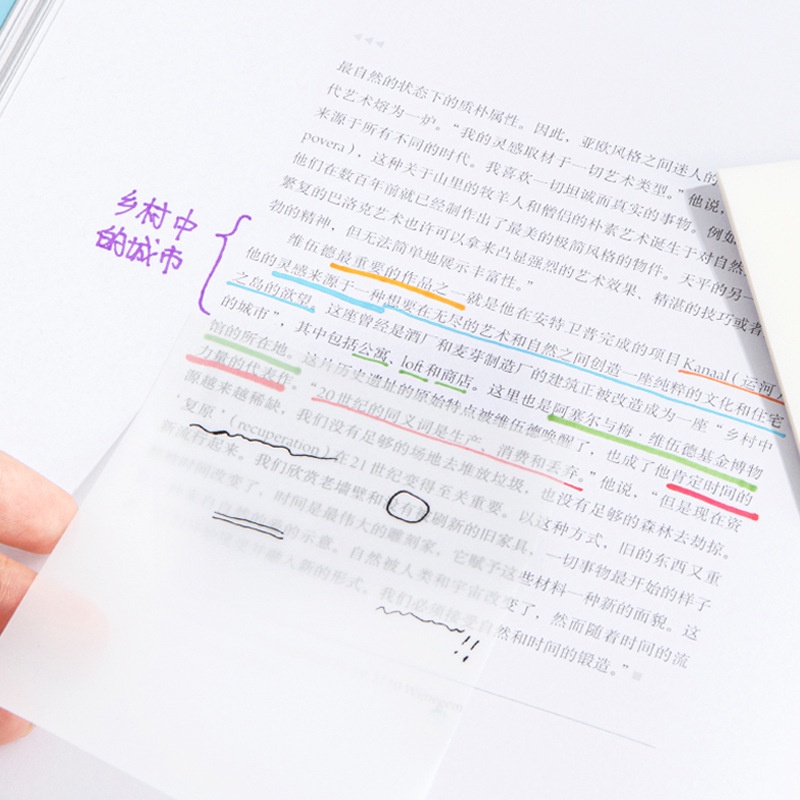 乡村中
的城市
最自然的状态下的质朴属性。因此,亚欧风格之间迷人的
代艺术熔为一炉。“我的灵感取材于一切艺术类型。”他说,
来源于所有不同的时代。我喜欢一切坦诚而真实的事物。例如,
povera),这种关于山里的牧羊人和僧侣的朴素艺术诞生于对自然
他们在数百年前就已经制作出了最美的极简风格的物件。天平的另一
繁复的巴洛克艺术也许可以拿来凸显强烈的艺术效果、精湛的技巧或者
勃的精神,但无法简单地展示丰富性。”
维伍德最重要的作品之一就是他在安特卫普完成的项目Kanaal(运河)
他的灵感来源于一种想要在无尽的艺术和自然之间创造一座纯粹的文化和住宅
之岛的欲望。这座曾经是酒厂和麦芽制造厂的建筑正被改造成为一座“乡村中
的城市”,其中包括公寓、loft和商店。这里也是阿塞尔与梅·维伍德基金博物
馆的所在地。这片历史遗址的原始特点被维伍德唤醒了,也成了他肯定时间的
力量的代表作。“20世纪的同义词是生产、消费和丢弃。”他说,“但是现在资
源越来越稀缺,我们没有足够的场地去堆放垃圾,也没有足够的森林去劫掠。
‘复原’(recuperation)在21世纪变得至关重要。以这种方式,旧的东西又重
新流行起来。我们欣赏老墙壁和没有刷新的旧家具,一切事物最开始的样子
时间改变了,时间是最伟大的雕刻家,它赋予这些材料一种新的面貌。这
的示意。自然被人类和宇宙改变了,然而随着时间的流
融入新的形式。我们必须接受自然和时间的锻造。”
!!